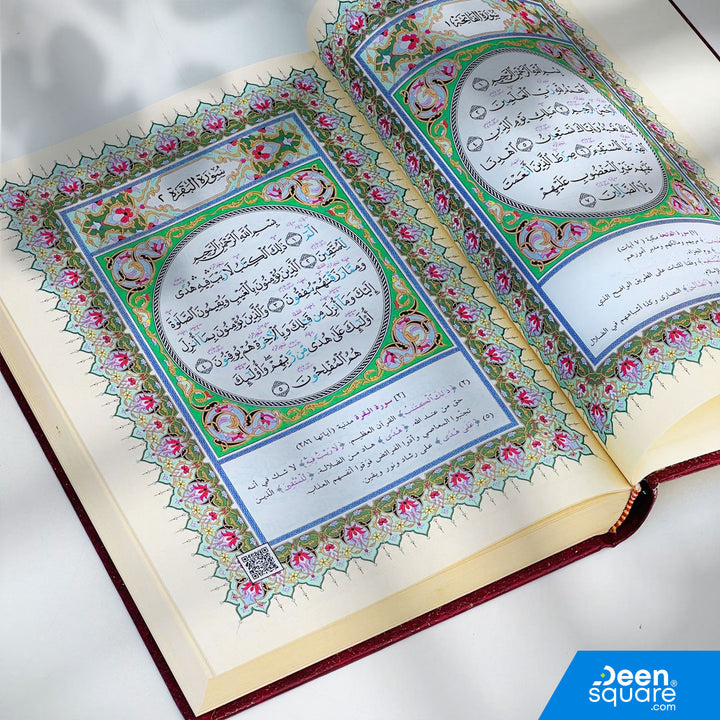 سُورَةُ الفَاتِحَةِ ١
بِسْمِ اللَّهِ الرَّحْمَٰنِ الرَّحِيمِ ١
الْحَمْدُ لِلَّهِ رَبِّ الْعَالَمِينَ ٢
الرَّحْمَٰنِ الرَّحِيمِ ٣ مَالِكِ يَوْمِ الدِّينِ ٤
إِيَّاكَ نَعْبُدُ وَإِيَّاكَ نَسْتَعِينُ ٥ اهْدِنَا
الصِّرَاطَ الْمُسْتَقِيمَ ٦ صِرَاطَ الَّذِينَ أَنْعَمْتَ
عَلَيْهِمْ غَيْرِ الْمَغْضُوبِ عَلَيْهِمْ
وَلَا الضَّالِّينَ ٧
سُورَةُ البَقَرَةِ ٢
بِسْمِ اللَّهِ الرَّحْمَٰنِ الرَّحِيمِ
الم ١ ذَٰلِكَ الْكِتَابُ لَا رَيْبَ فِيهِ هُدًى
لِلْمُتَّقِينَ ٢ الَّذِينَ يُؤْمِنُونَ بِالْغَيْبِ وَيُقِيمُونَ الصَّلَاةَ
وَمِمَّا رَزَقْنَاهُمْ يُنْفِقُونَ ٣ وَالَّذِينَ يُؤْمِنُونَ بِمَا أُنْزِلَ
إِلَيْكَ وَمَا أُنْزِلَ مِنْ قَبْلِكَ وَبِالْآخِرَةِ هُمْ يُوقِنُونَ ٤
أُولَٰئِكَ عَلَىٰ هُدًى مِنْ رَبِّهِمْ وَأُولَٰئِكَ
هُمُ الْمُفْلِحُونَ ٥
(٢) سورة البقرة مدنية (آياتها ٢٨٦)
(٢) ﴿ذلك الكتاب﴾ القرآن العظيم ﴿لا ريب فيه﴾ لا شك في أنه
حق من عند الله ﴿هدى﴾ هاد من الضلالة ﴿للمتقين﴾ الذين
تجنبوا المعاصي وأدوا الفرائض فوقوا أنفسهم العذاب
(٥) ﴿على هدى﴾ على رشاد ونور ويقين
Deen
square®
.com